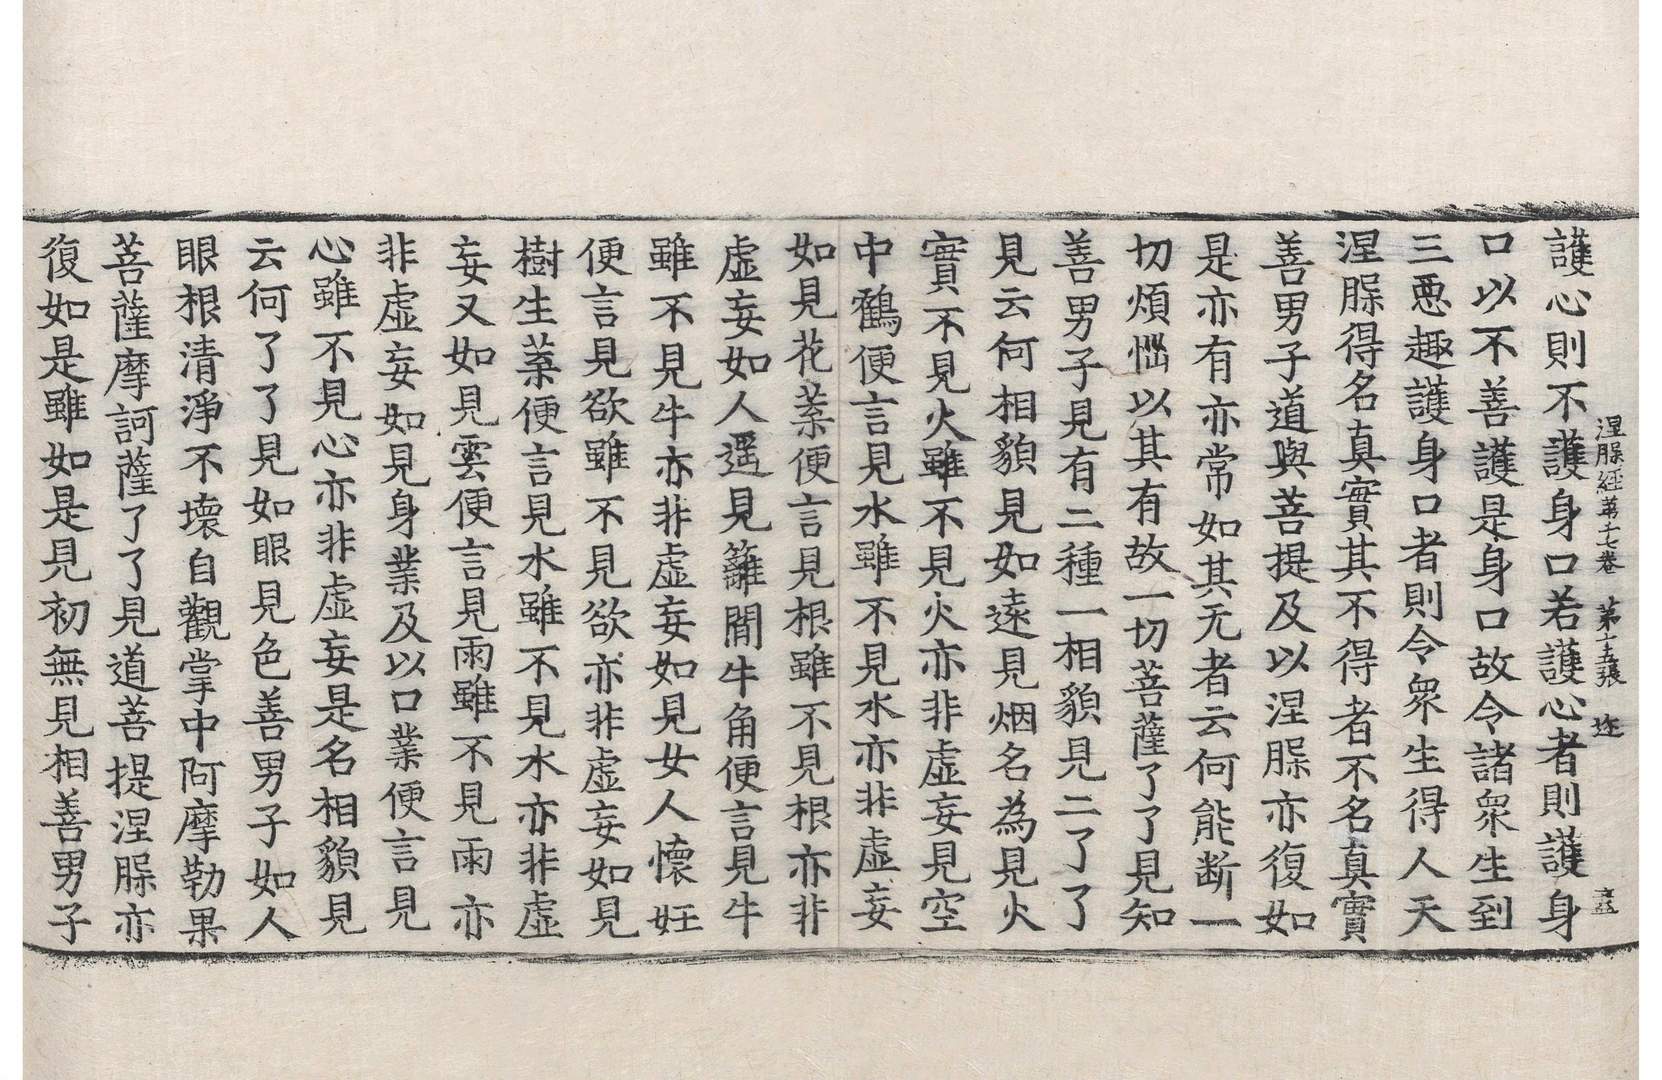 涅槃經第十七卷　第十五張　迩
護心則不護身口若護心者則護身
口以不善護是身口故令諸衆生到
三惡趣護身口者則令衆生得人天
涅槃得名真實其不得者不名真實
善男子道與菩提及以涅槃亦復如
是亦有亦常如其无者云何能断一
切煩惱以其有故一切菩薩了了見知
善男子見有二種一相貌見二了了
見云何相貌見如遠見烟名為見火
實不見火雖不見火亦非虛妄見空
中鶴便言見水雖不見水亦非虛妄
如見花葉便言見根雖不見根亦非
虛妄如人遥見籬間牛角便言見牛
雖不見牛亦非虛妄如見女人懷妊
便言見欲雖不見欲亦非虛妄如見
樹生葉便言見水雖不見水亦非虛
妄又如見雲便言見雨雖不見雨亦
非虛妄如見身業及以口業便言見
心雖不見心亦非虛妄是名相貌見
云何了了見如眼見色善男子如人
眼根清淨不壞自觀掌中阿摩勒果
菩薩摩訶薩了了見道菩提涅槃亦
復如是雖如是見初無見相善男子